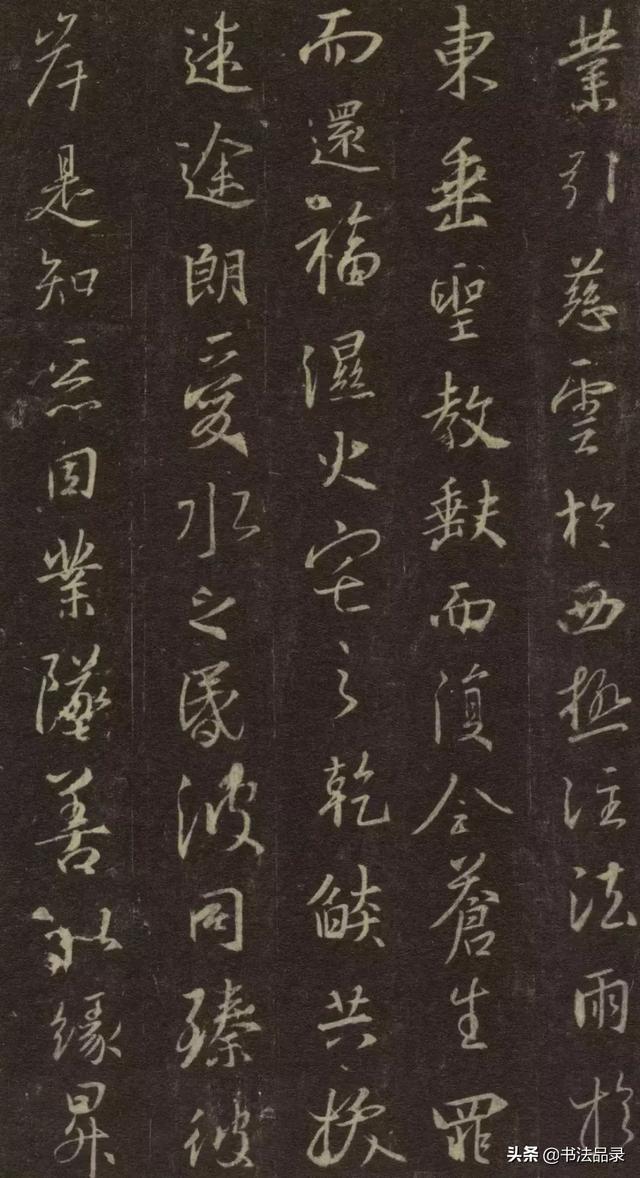 業引慈雲於西極注法雨於
東垂聖教缺而復全蒼生罪
而還福濕火宅之乾燄共拔
迷途朗愛水之昏波同臻彼
岸是知惡因業墜善以緣昇
头条 @书法品录